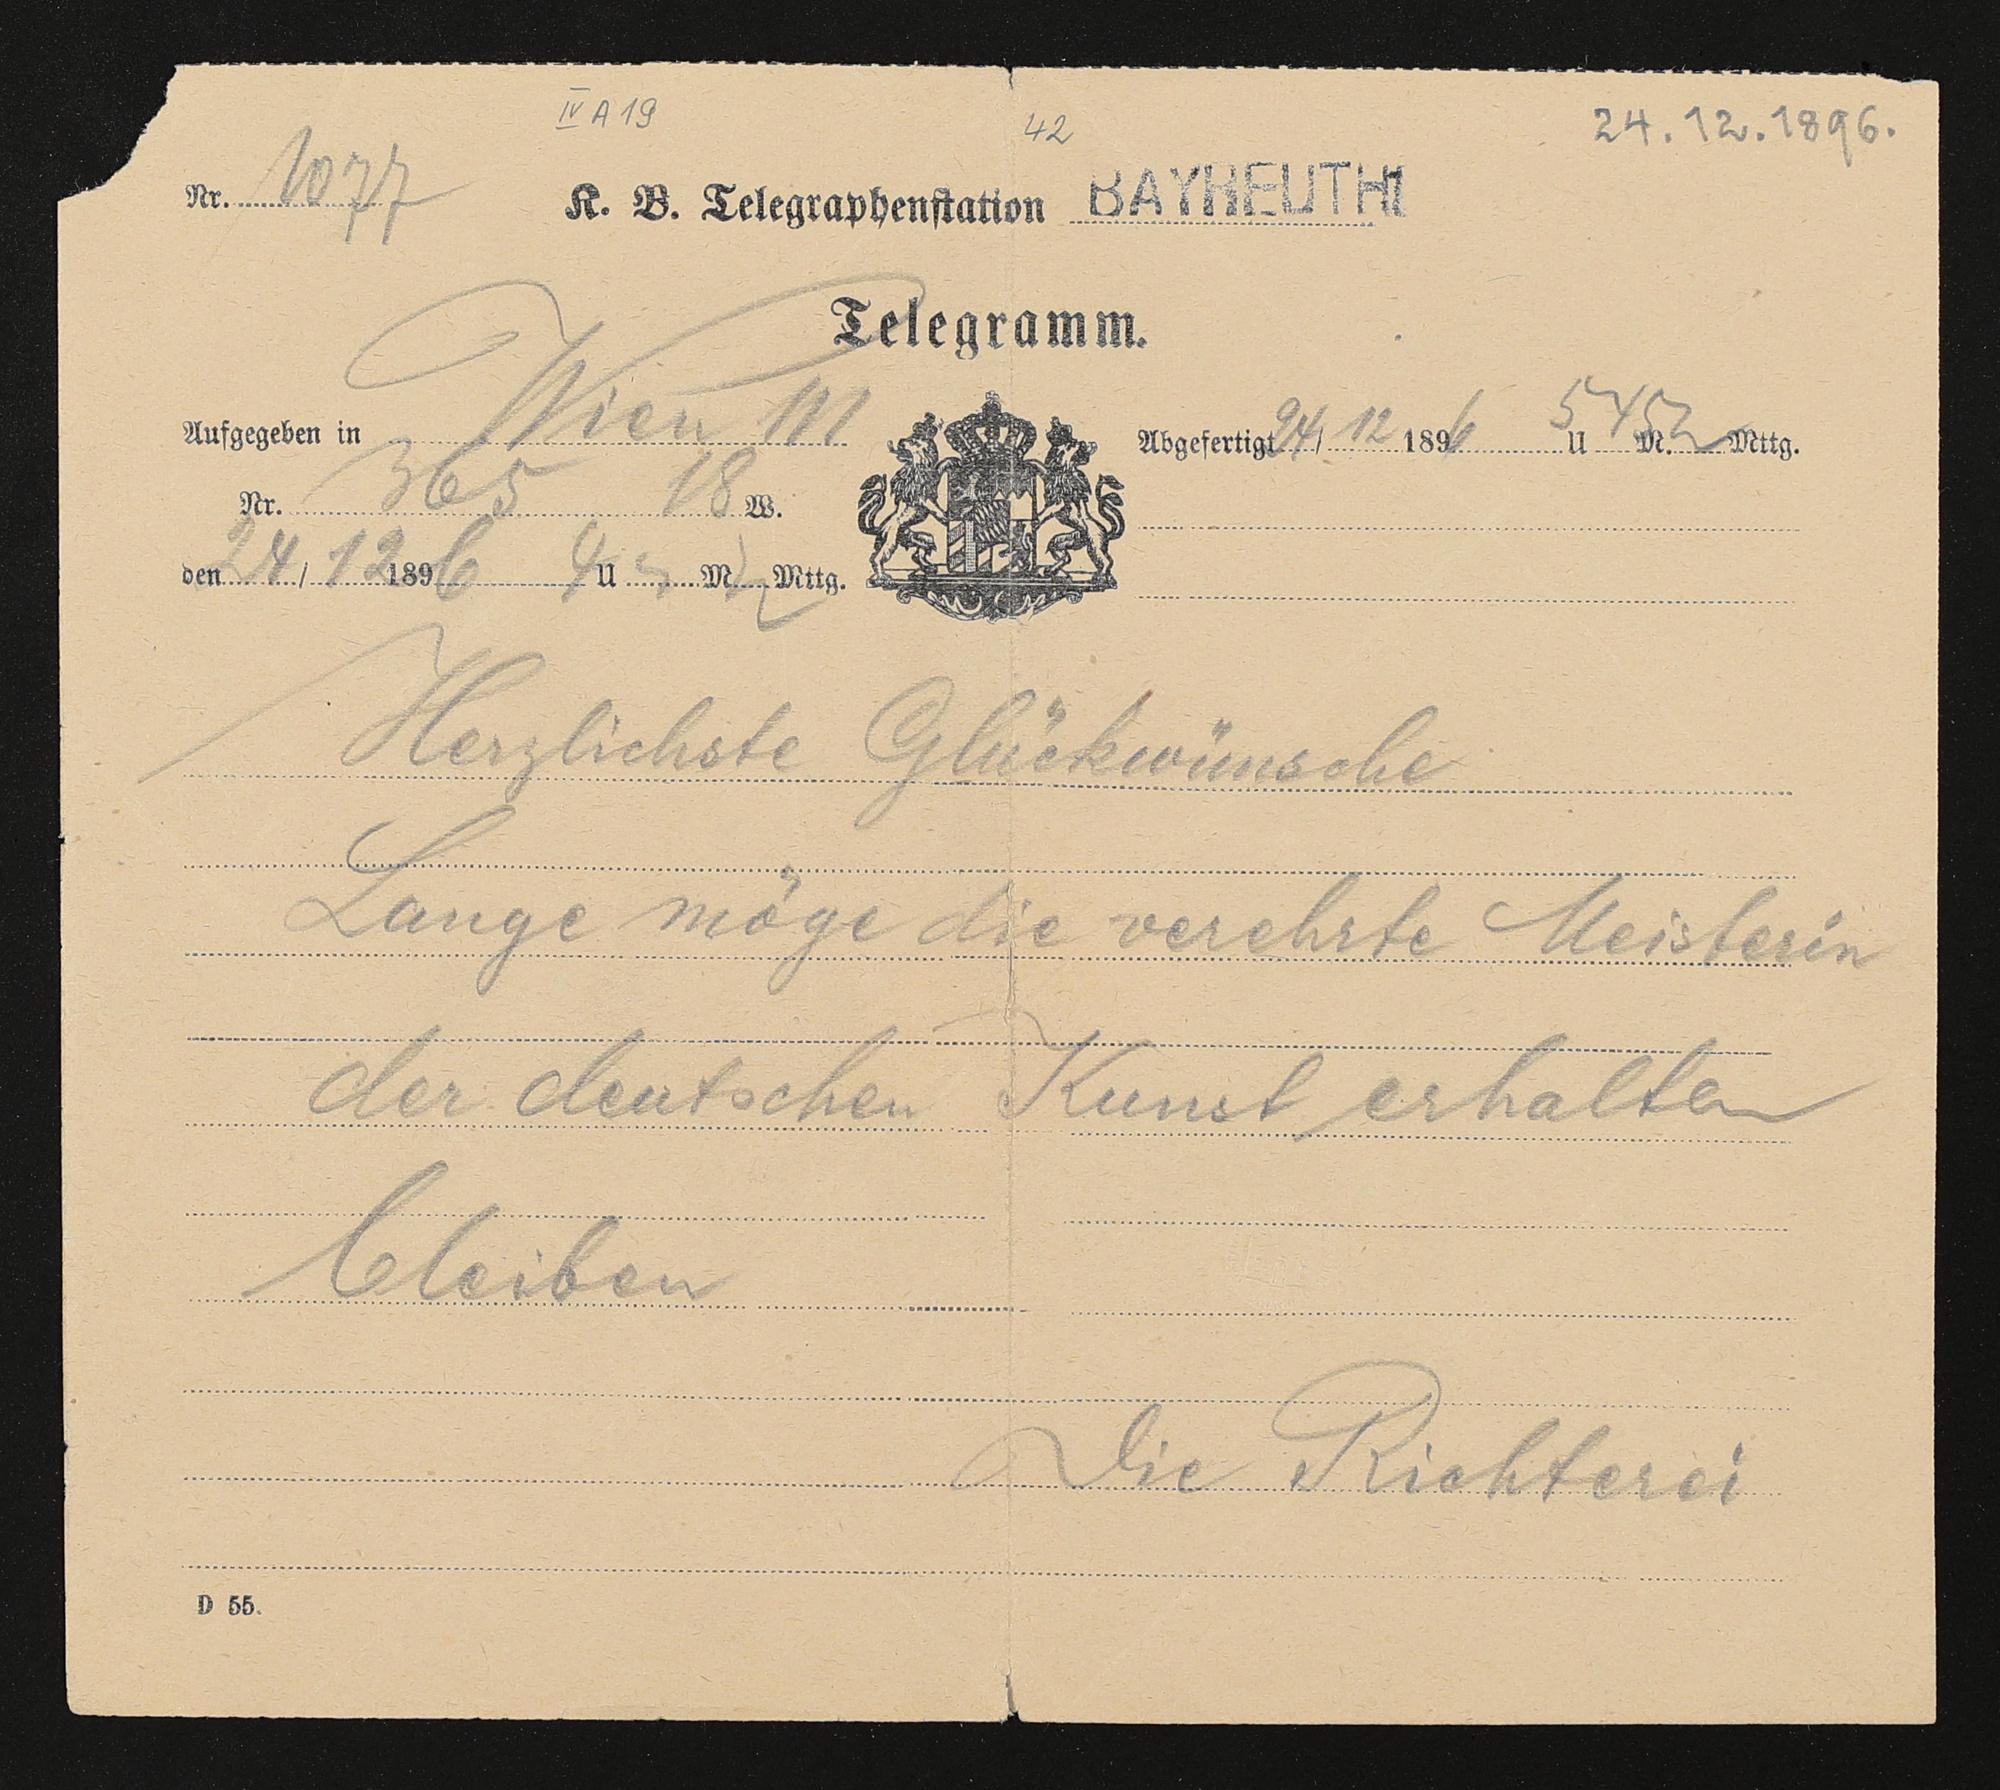 IV A 19
42
24.12.1896.
Nr. 1077
K. B. Telegraphenstation BAYREUTH
Telegramm.
Aufgegeben in Wien 111
Abgefertigt 24/12 1896 5 U 45 M. Mttg.
Nr. 365 18 W.
den 24/12 1896 4 U M Mttg.
Herzlichste Glückwünsche
Lange möge die verehrte Meisterin
der deutschen Kunst erhalten
bleiben
Die Richterei
D 55.